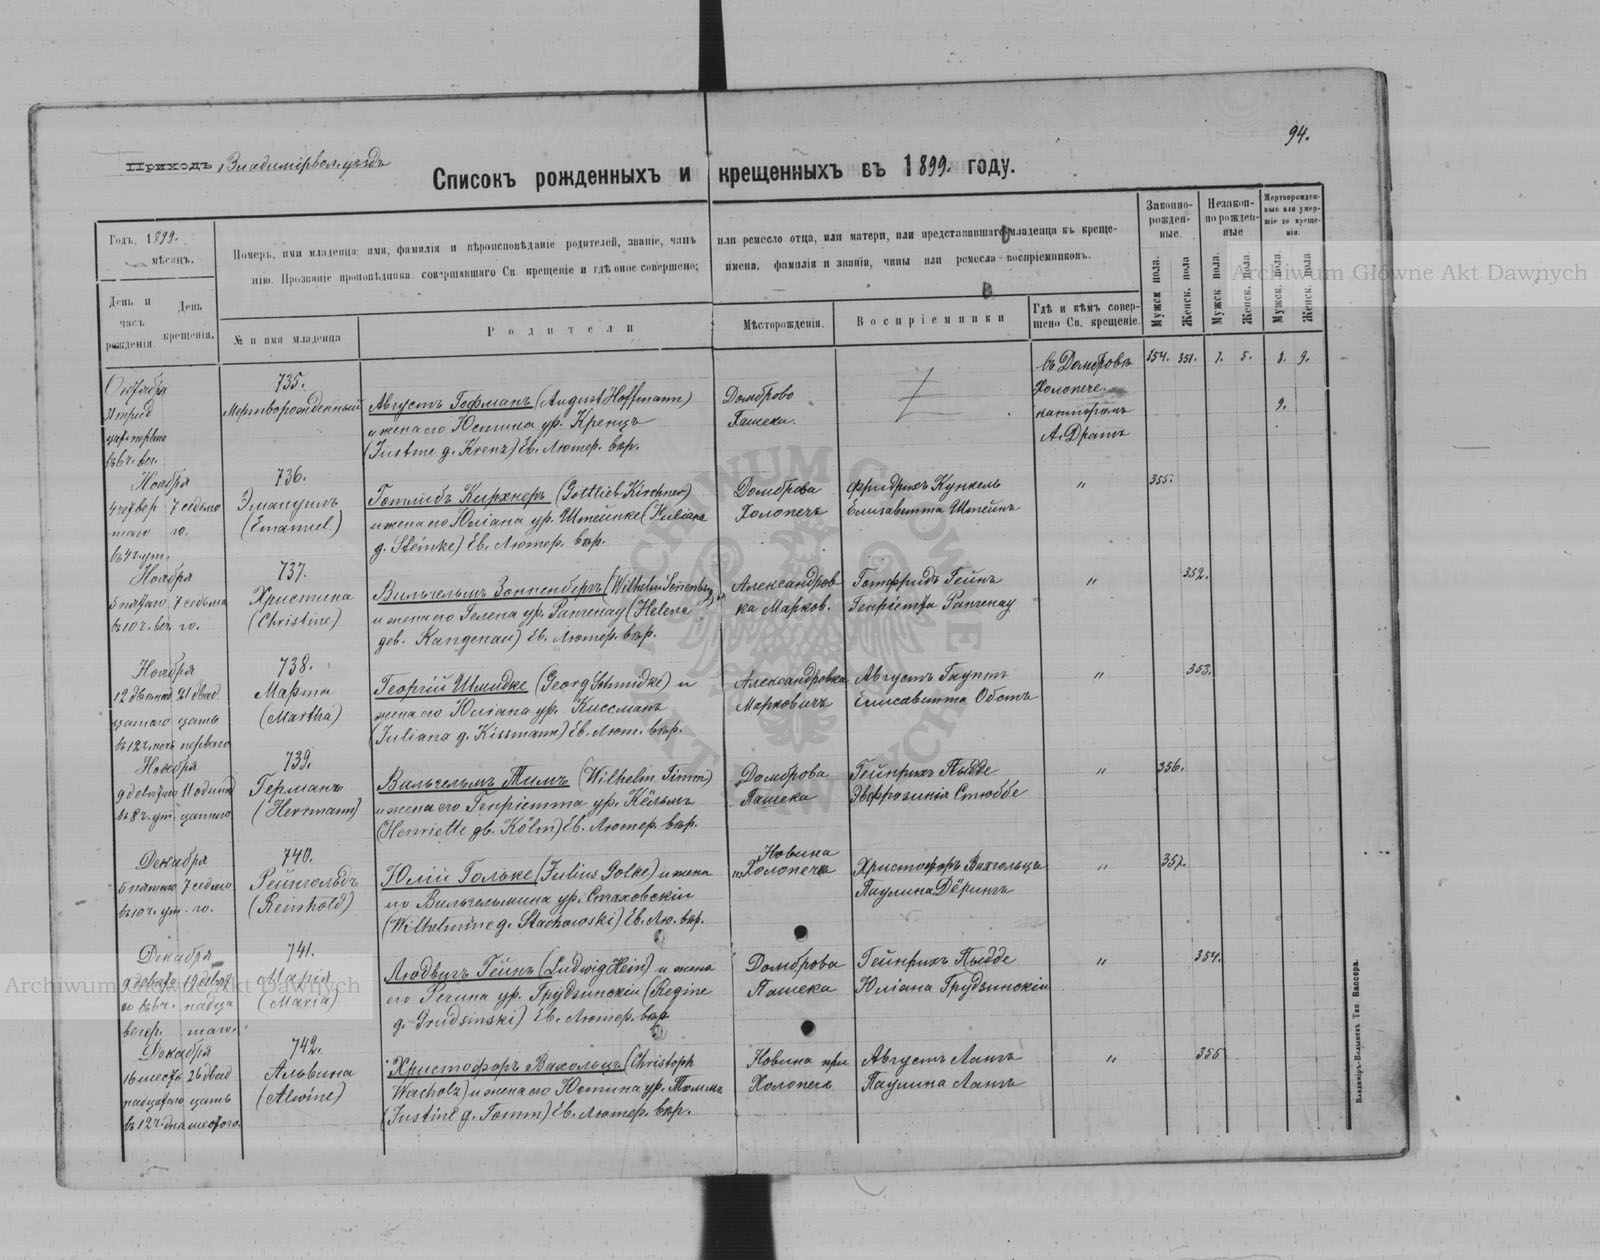 94.
Приходъ Владимірвол. уѣздъ
Списокъ рожденныхъ и крещенныхъ въ 1899. году.
Годъ, 1899.
мѣсяцъ.
День и часъ рожденія
День крещенія.
Номеръ, имя младенца; имя, фамилія и вѣроисповѣданіе родителей, званіе, чинъ или ремесло отца, или матери, или представившаго младенца къ креще-
нію. Прозваніе проповѣдника совершавшаго Св. крещеніе и гдѣ оное совершено; имена, фамилія и званія, чины или ремесла воспріемниковъ.
№ и имя младенца
Родители
Мѣсторожденія.
Воспріемники
Гдѣ и кѣмъ совер-
шено Св. крещеніе.
Законно-
рожден-
ные.
Незакон-
но рожден-
ные
Мертворожден-
ные или умер-
шіе до креще-
нія.
Мужск пола.
Женск. пола
Мужск пола.
Женск. пола
Мужск. пола.
Женск. пола
154. 351. 7. 5. 8. 9.
Октября
31 трид
цать перваго
въ 6 ч. веч.
735.
Мертворожденный
Августъ Гофманъ (August Hoffmann)
и жена его Юстина ур. Кренцъ
(Justine g. Krenz) Ев. Лютер. вѣр.
Домброво
Пашека.
въ Домбровѣ
Холопече
пасторомъ
А. Дратъ
9.
Ноября
4 четвер 7 седьмо
таго го.
въ 4 ч. ут.
736.
Эмануилъ
(Emanuel)
Готлибъ Кирхнеръ (Gottlieb Kirchner)
и жена его Юліана ур. Штейнке (Juliana
g. Steinke) Ев. Лютер. вѣр.
Домброва
Холопечъ
Фридрихъ Кункель
Елизаветта Штейнъ
"
355.
Ноября
5 пятаго 7 седьма
въ 10 ч. веч. го.
737.
Христина
(Christine)
Вильгельмъ Зонненбергъ (Wilhelm Sonnenberg)
и жена его Гелена ур. Рангенау (Helene
дев. Rangenau) Ев. Лютер. вѣр.
Александров
ка Марков.
Готфридъ Гейнъ
Генріетта Рангенау
"
352.
Ноября
12 двенад 21 двад
цатаго цать
въ 12 ч. ночи перваго
738.
Марта
(Martha)
Георгій Шмидке (Georg Schmidke) и
жена его Юліана ур. Киссманъ
(Juliana g. Kissmann) Ев. Лют. вѣр.
Александровка
Марковичъ
Августъ Гауптъ
Елисаветта Обстъ
"
353.
Ноября
9 девятаго 11 одинад
въ 8 ч. ут. цатаго
739.
Германъ
(Herrmann)
Вильгельмъ Тимъ (Wilhelm Timm)
и жена его Генріетта ур. Кёльмъ
(Henriette дв. Kölm) Ев. Лютер. вѣр.
Домброва
Пашека
Гейнрихъ Пыдде
Эвфрозинія Стюббе
"
356.
Декабря
5 пятаго 7 седмо
въ 10 ч. ут. го.
740.
Рейнгольдъ
(Reinhold)
Юлій Гольке (Julius Golke) и жена
его Вильгельмина ур. Стаховскіи
(Wilhelmine g. Stachowski) Ев. Лю. вѣр.
Новина
Холопечъ
Христофоръ Вахгольцъ
Паулина Дёрингъ
"
357.
Декабря
9 девята 19 девят
го въ 6 ч. надца
вечер. таго.
741.
Марія
(Maria)
Людвигъ Гейнъ (Ludwig Hein) и жена
его Регина ур. Грудзинскіи (Regine
g. Grudsinski) Ев. Лютер. вѣр
Домброва
Пашека
Гейнрихъ Пыдде
Юліана Грудзинскіи
"
354.
Декабря
16 шест 26 двад
надцатаго цать
въ 12 ч. дня шестого.
742.
Альвина
(Alwine)
Христофоръ Вахольцъ (Christoph
Wacholz) и жена его Юстина ур. Томмъ
(Justine g. Tomm) Ев. Лютер. вѣр.
Новина при
Холопечъ
Августъ Лангъ
Паулина Лангъ
"
355
Владиміръ-Волынскъ Тип. Вассера.
Archiwum Główne Akt Dawnych
Archiwum Główne Akt Dawnych
Archiwum Główne Akt Dawnych
ARCHIWUM GŁÓWNE AKT DAWNYCH